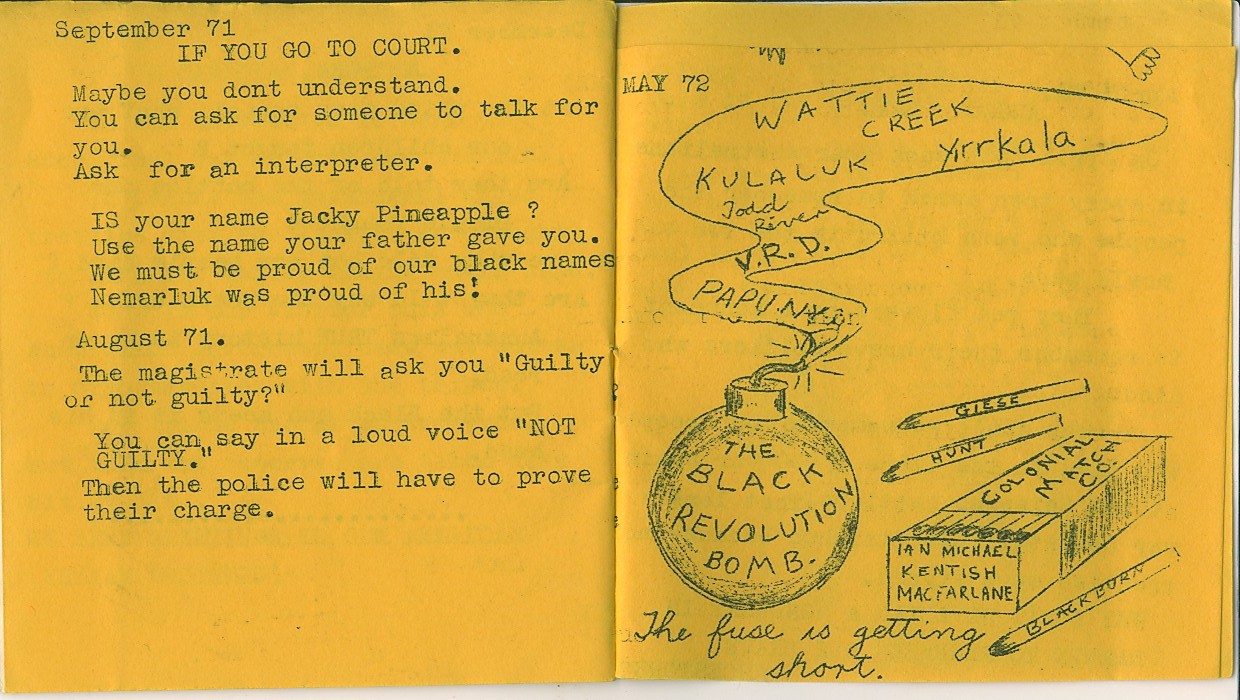 September 71
IF YOU GO TO COURT.
Maybe you dont understand.
You can ask for someone to talk for
you.
Ask for an interpreter.
IS your name Jacky Pineapple ?
Use the name your father gave you.
We must be proud of our black names
Nemarluk was proud of his!
August 71.
The magistrate will ask you "Guilty
or not guilty?"
You can say in a loud voice "NOT
GUILTY."
Then the police will have to prove
their charge.
MAY 72
WATTIE
CREEK
Yirrkala
KULALUK
Todd
River
V.R.D.
PAPUNYA
THE
BLACK
REVOLUTION
BOMB.
GIESE
HUNT
COLONIAL
MATCH
CO.
IAN MICHAEL
KENTISH
MACFARLANE
BLACKBURN
The fuse is getting
short.